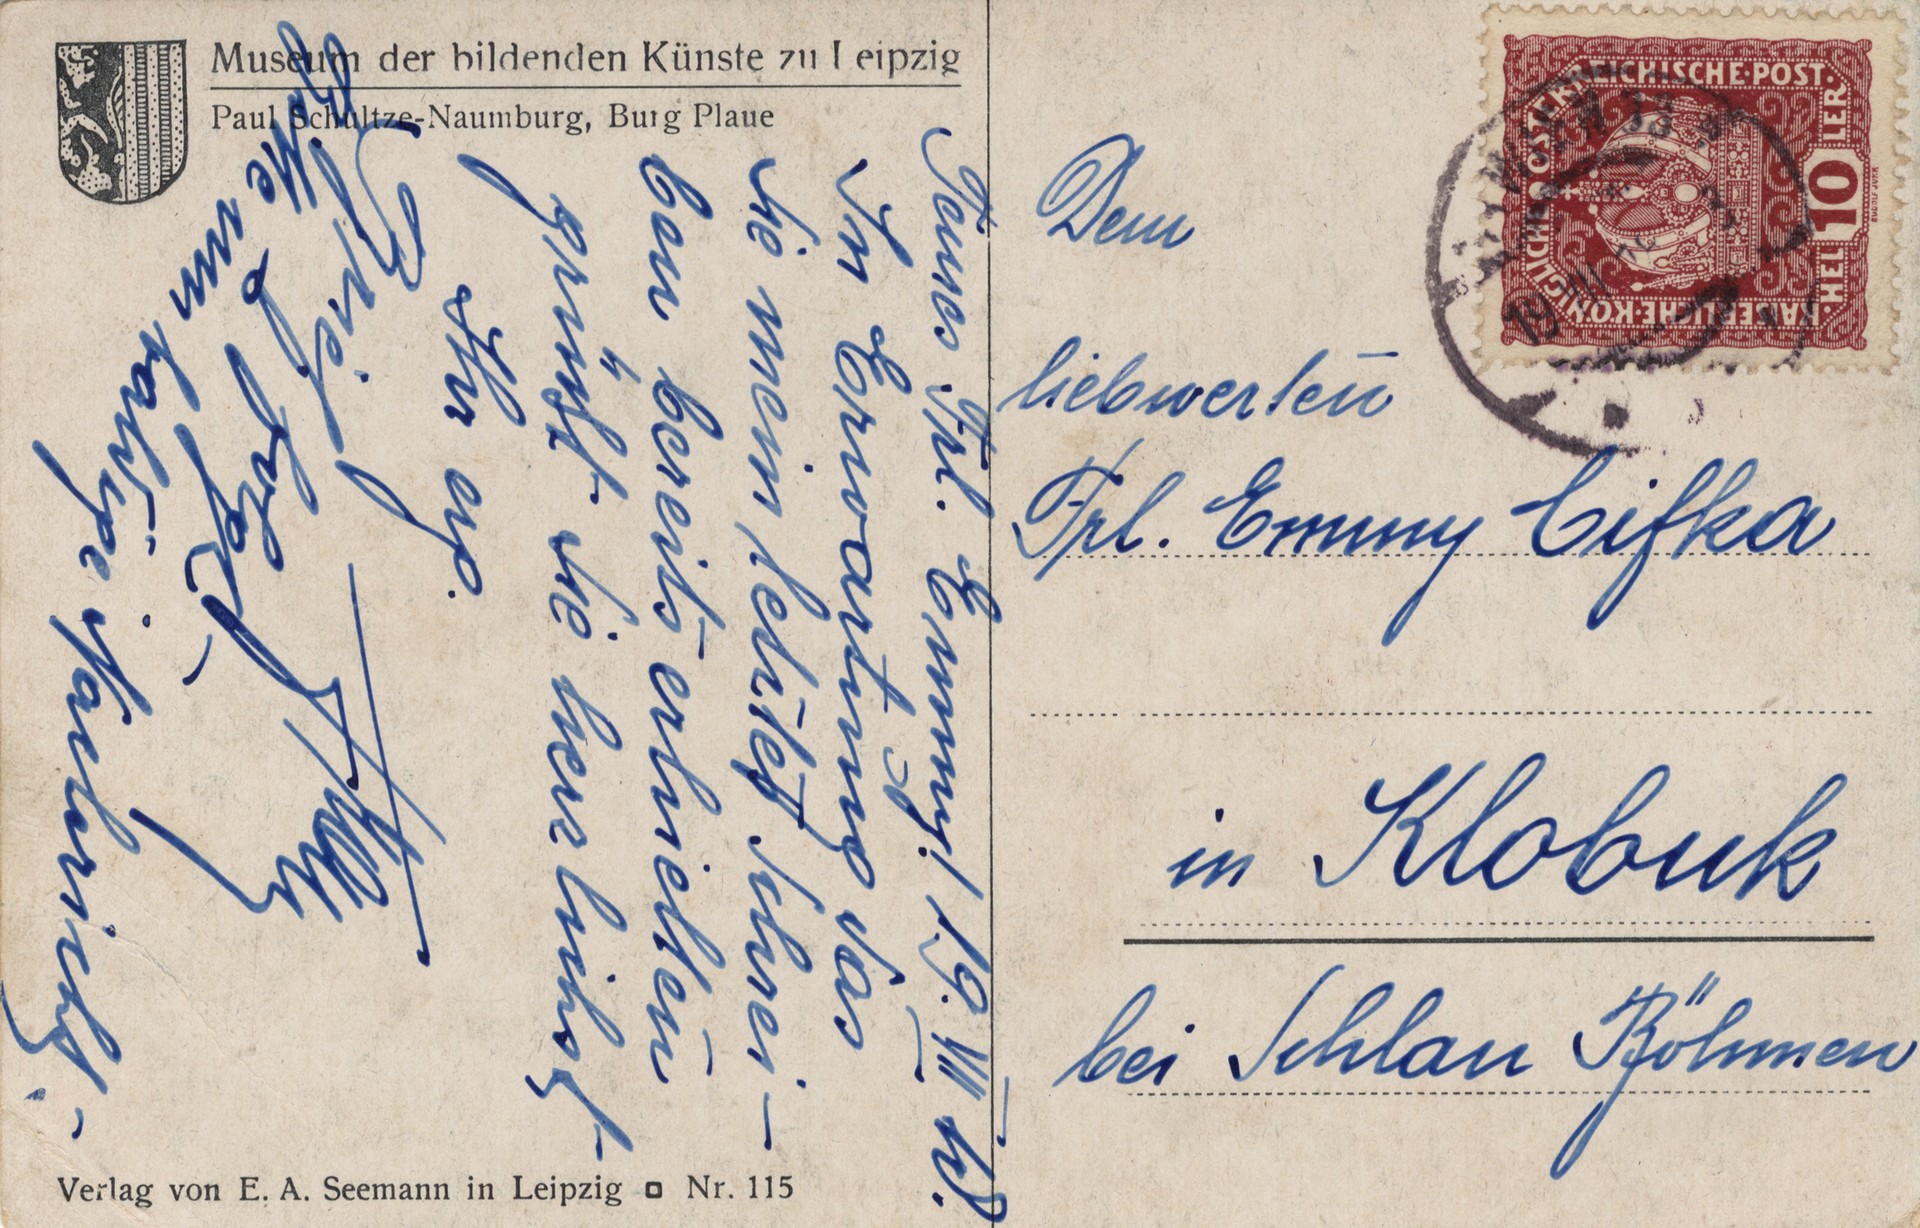 Museum der bildenden Künste zu Leipzig
Paul Schultze-Naumburg, Burg Plaue
Teures Frl. Emmy! 19.VIII 18.
In Erwartung das
sie mein letztes Schrei-
ben bereits erhielten
grüsst sie herzlichst
Ihr erg.
Brief folgt
Bitte um baldige Nachricht.
Verlag von E. A. Seemann in Leipzig Nr. 115
KAISERLICHE·KÖNIGLICHE ÖSTERREICHISCHE·POST·
HELLER
10
WIEN
19 VIII 18
Dem
liebwerten
Frl. Emmy Cifka
in Klobuk
bei Schlan Böhmen